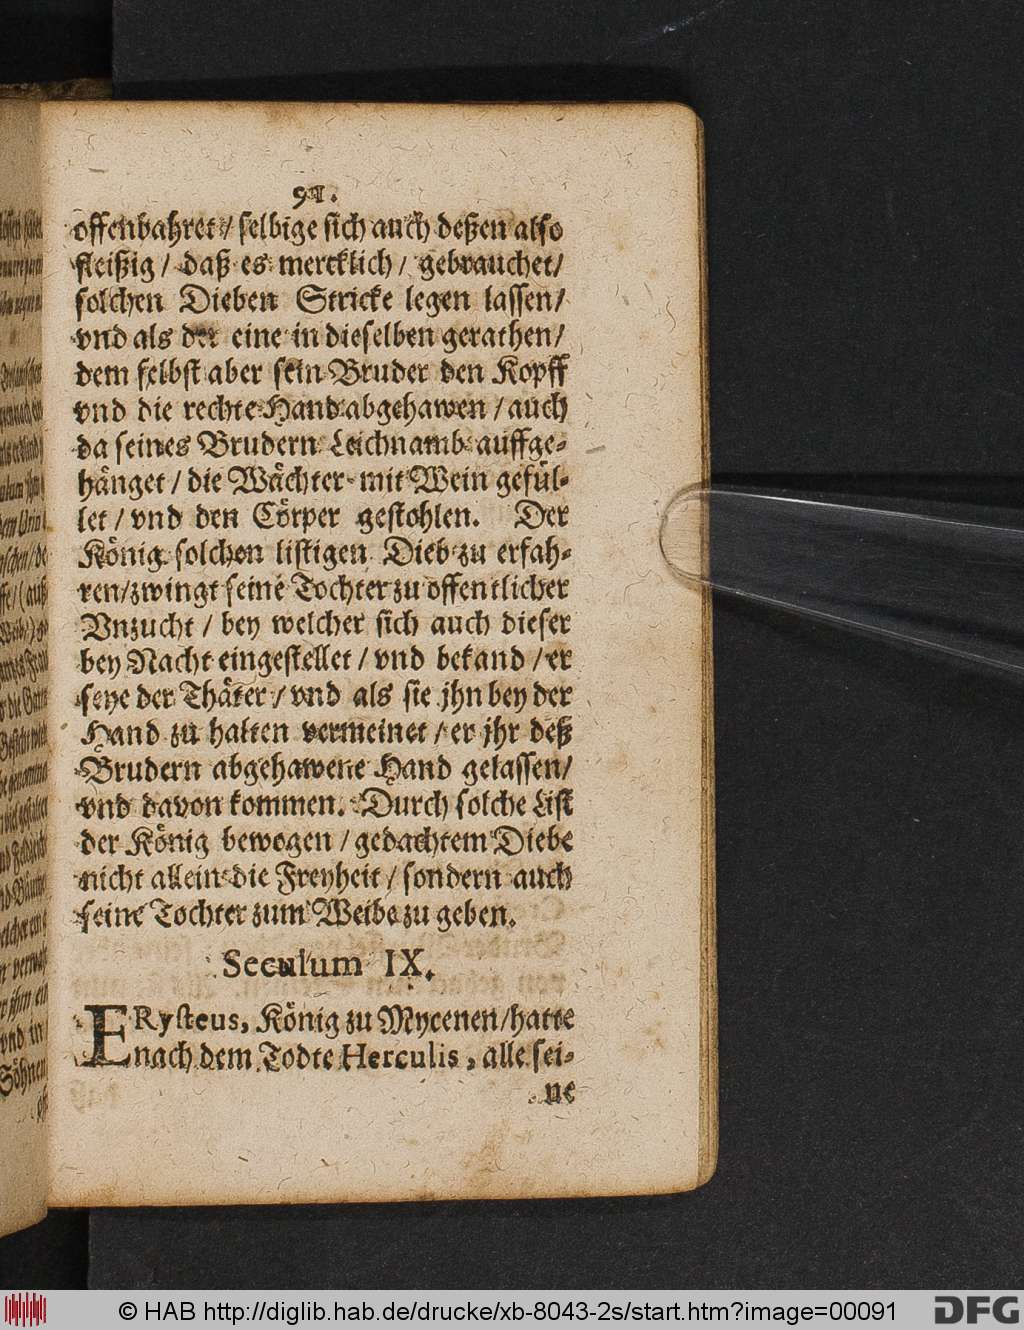 91.
offenbahret / selbige sich auch deßen also
fleißig / daß es mercklich / gebrauchet /
solchen Dieben Stricke legen lassen /
vnd als der eine in dieselben gerathen /
dem selbst aber sein Bruder den Kopff
vnd die rechte Hand abgehawen / auch
da seines Brudern Leichnamb auffge-
hänget / die Wächter mit Wein gefül-
let / vnd den Cörper gestohlen. Der
König solchen listigen Dieb zu erfah-
ren / zwingt seine Tochter zu offentlicher
Vnzucht / bey welcher sich auch dieser
bey Nacht eingestellet / vnd bekand / er
seye der Thäter / vnd als sie jhn bey der
Hand zu halten vermeinet / er jhr deß
Brudern abgehawene Hand gelassen /
vnd davon kommen. Durch solche List
der König bewogen / gedachtem Diebe
nicht allein die Freyheit / sondern auch
seine Tochter zum Weibe zu geben.
Seculum IX.
ERysteus, König zu Mycenen / hatte
nach dem Todte Herculis, alle sei-
ne
© HAB http://diglib.hab.de/drucke/xb-8043-2s/start.htm?image=00091
DFG